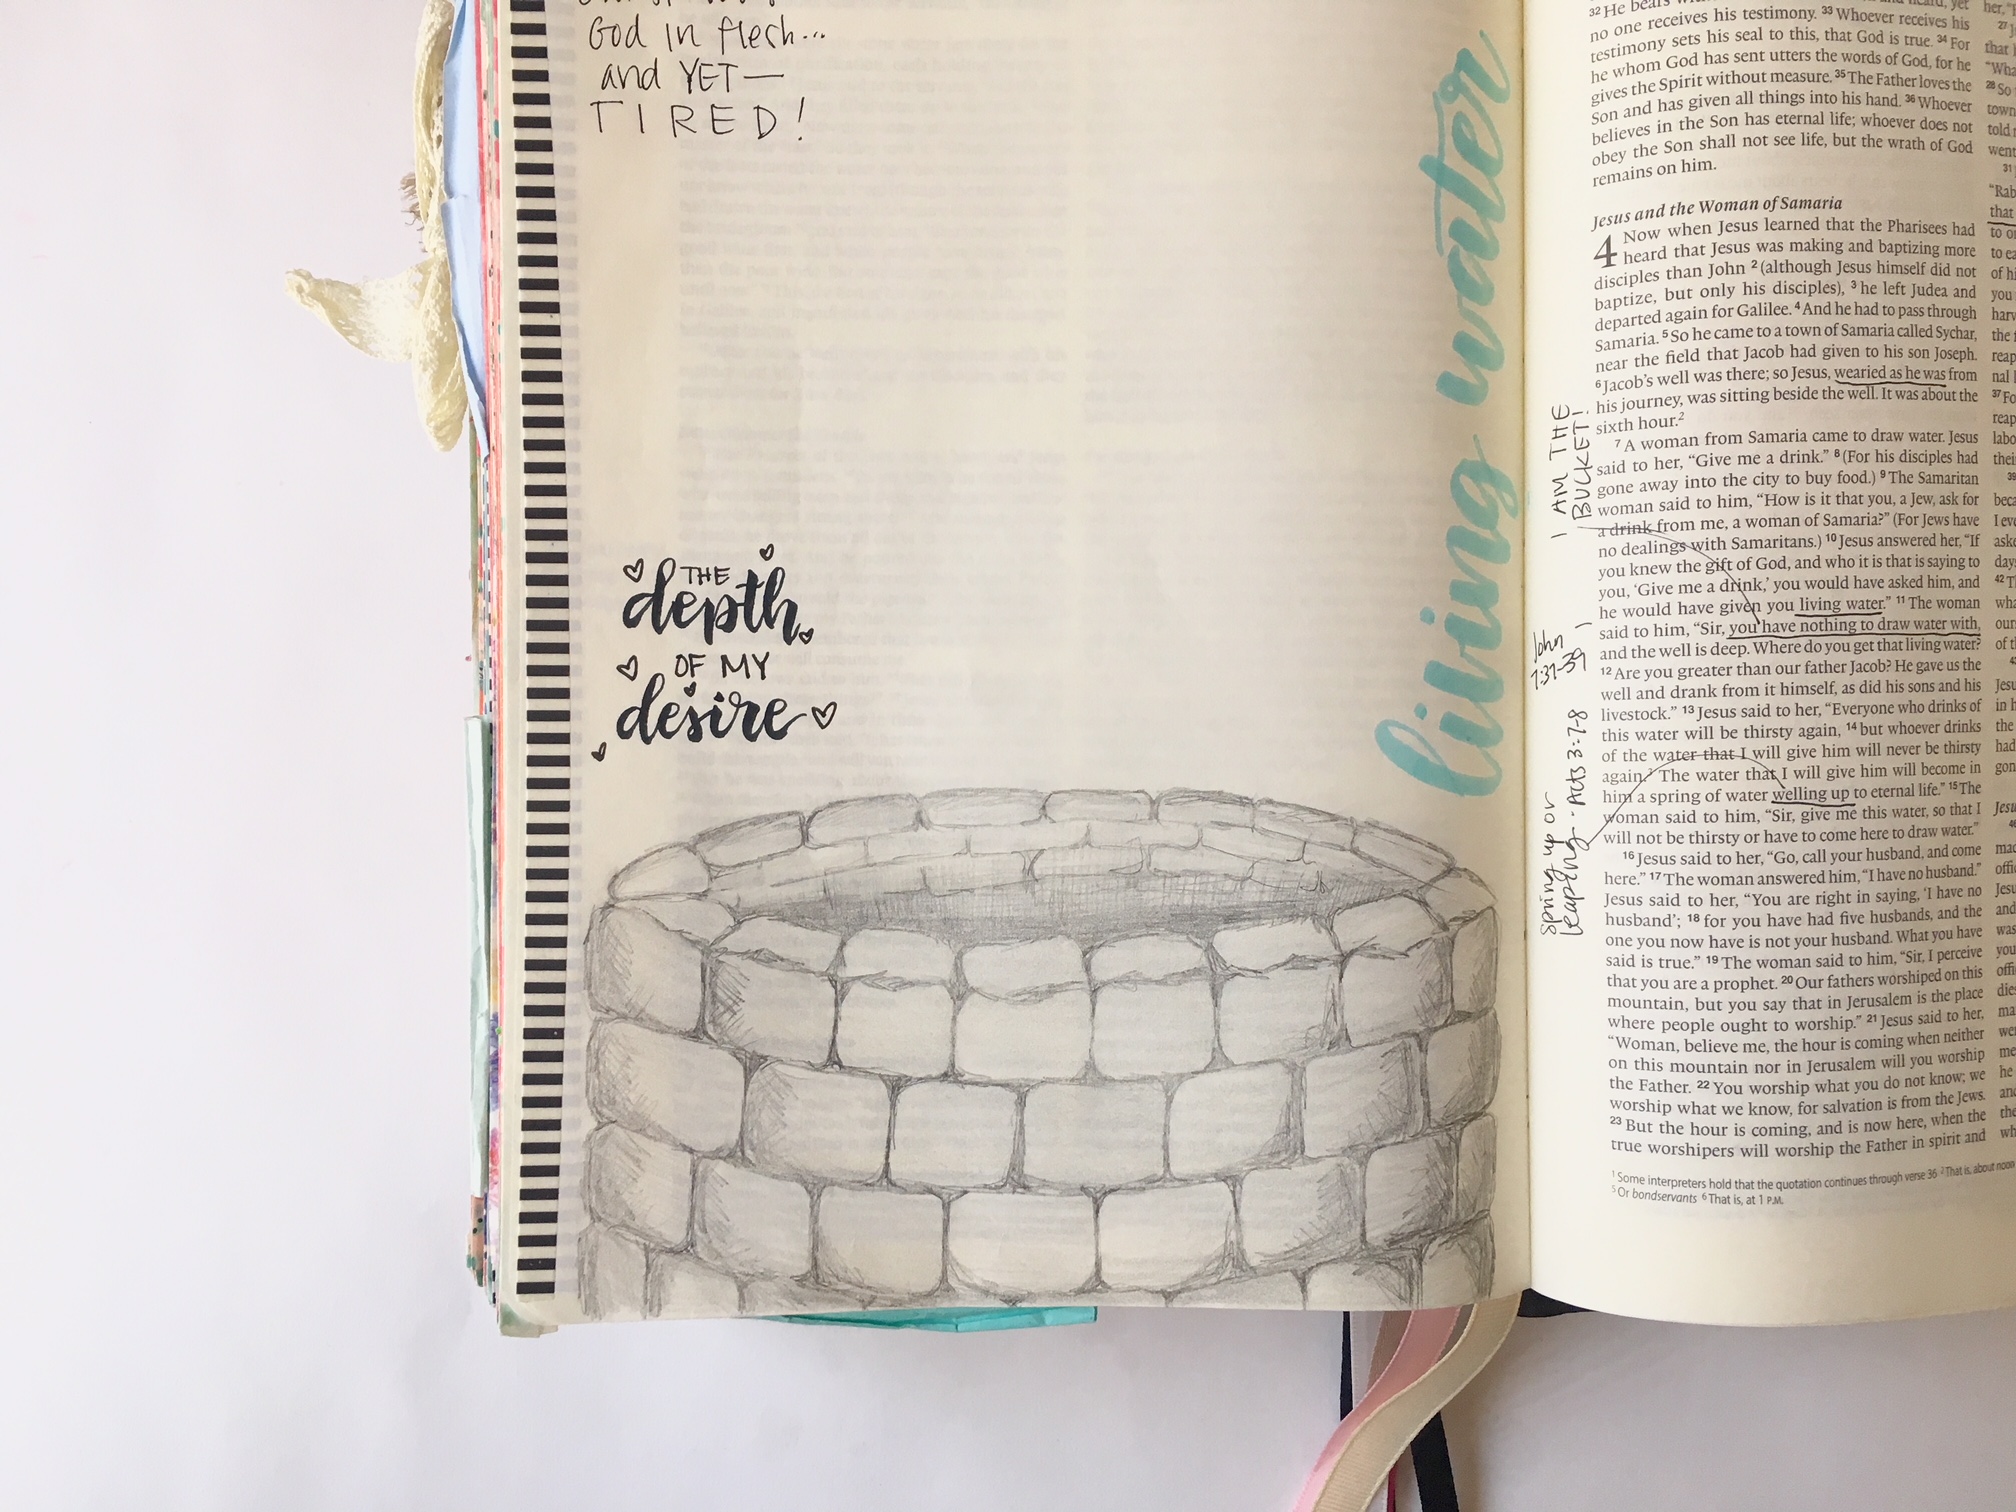 God in flesh...
and YET—
TIRED!
THE
depth
OF MY
desire
living water
I AM THE
BUCKET!
John
7:37-39
spring up or
leaping · Acts 3:7-8
32 He bears
no one receives his testimony. 33 Whoever receives his
testimony sets his seal to this, that God is true. 34 For
he whom God has sent utters the words of God, for he
gives the Spirit without measure. 35 The Father loves the
Son and has given all things into his hand. 36 Whoever
believes in the Son has eternal life; whoever does not
obey the Son shall not see life, but the wrath of God
remains on him.
Jesus and the Woman of Samaria
4 Now when Jesus learned that the Pharisees had
heard that Jesus was making and baptizing more
disciples than John 2 (although Jesus himself did not
baptize, but only his disciples), 3 he left Judea and
departed again for Galilee. 4 And he had to pass through
Samaria. 5 So he came to a town of Samaria called Sychar,
near the field that Jacob had given to his son Joseph.
6 Jacob's well was there; so Jesus, wearied as he was from
his journey, was sitting beside the well. It was about the
sixth hour.2
7 A woman from Samaria came to draw water. Jesus
said to her, "Give me a drink." 8 (For his disciples had
gone away into the city to buy food.) 9 The Samaritan
woman said to him, "How is it that you, a Jew, ask for
a drink from me, a woman of Samaria?" (For Jews have
no dealings with Samaritans.) 10 Jesus answered her, "If
you knew the gift of God, and who it is that is saying to
you, 'Give me a drink,' you would have asked him, and
he would have given you living water." 11 The woman
said to him, "Sir, you have nothing to draw water with,
and the well is deep. Where do you get that living water?
12 Are you greater than our father Jacob? He gave us the
well and drank from it himself, as did his sons and his
livestock." 13 Jesus said to her, "Everyone who drinks of
this water will be thirsty again, 14 but whoever drinks
of the water that I will give him will never be thirsty
again.3 The water that I will give him will become in
him a spring of water welling up to eternal life." 15 The
woman said to him, "Sir, give me this water, so that I
will not be thirsty or have to come here to draw water."
16 Jesus said to her, "Go, call your husband, and come
here." 17 The woman answered him, "I have no husband."
Jesus said to her, "You are right in saying, 'I have no
husband'; 18 for you have had five husbands, and the
one you now have is not your husband. What you have
said is true." 19 The woman said to him, "Sir, I perceive
that you are a prophet. 20 Our fathers worshiped on this
mountain, but you say that in Jerusalem is the place
where people ought to worship." 21 Jesus said to her,
"Woman, believe me, the hour is coming when neither
on this mountain nor in Jerusalem will you worship
the Father. 22 You worship what you do not know; we
worship what we know, for salvation is from the Jews.
23 But the hour is coming, and is now here, when the
true worshipers will worship the Father in spirit and
1 Some interpreters hold that the quotation continues through verse 36 2 That is, about noon
5 Or bondservants 6 That is, at 1 P.M.